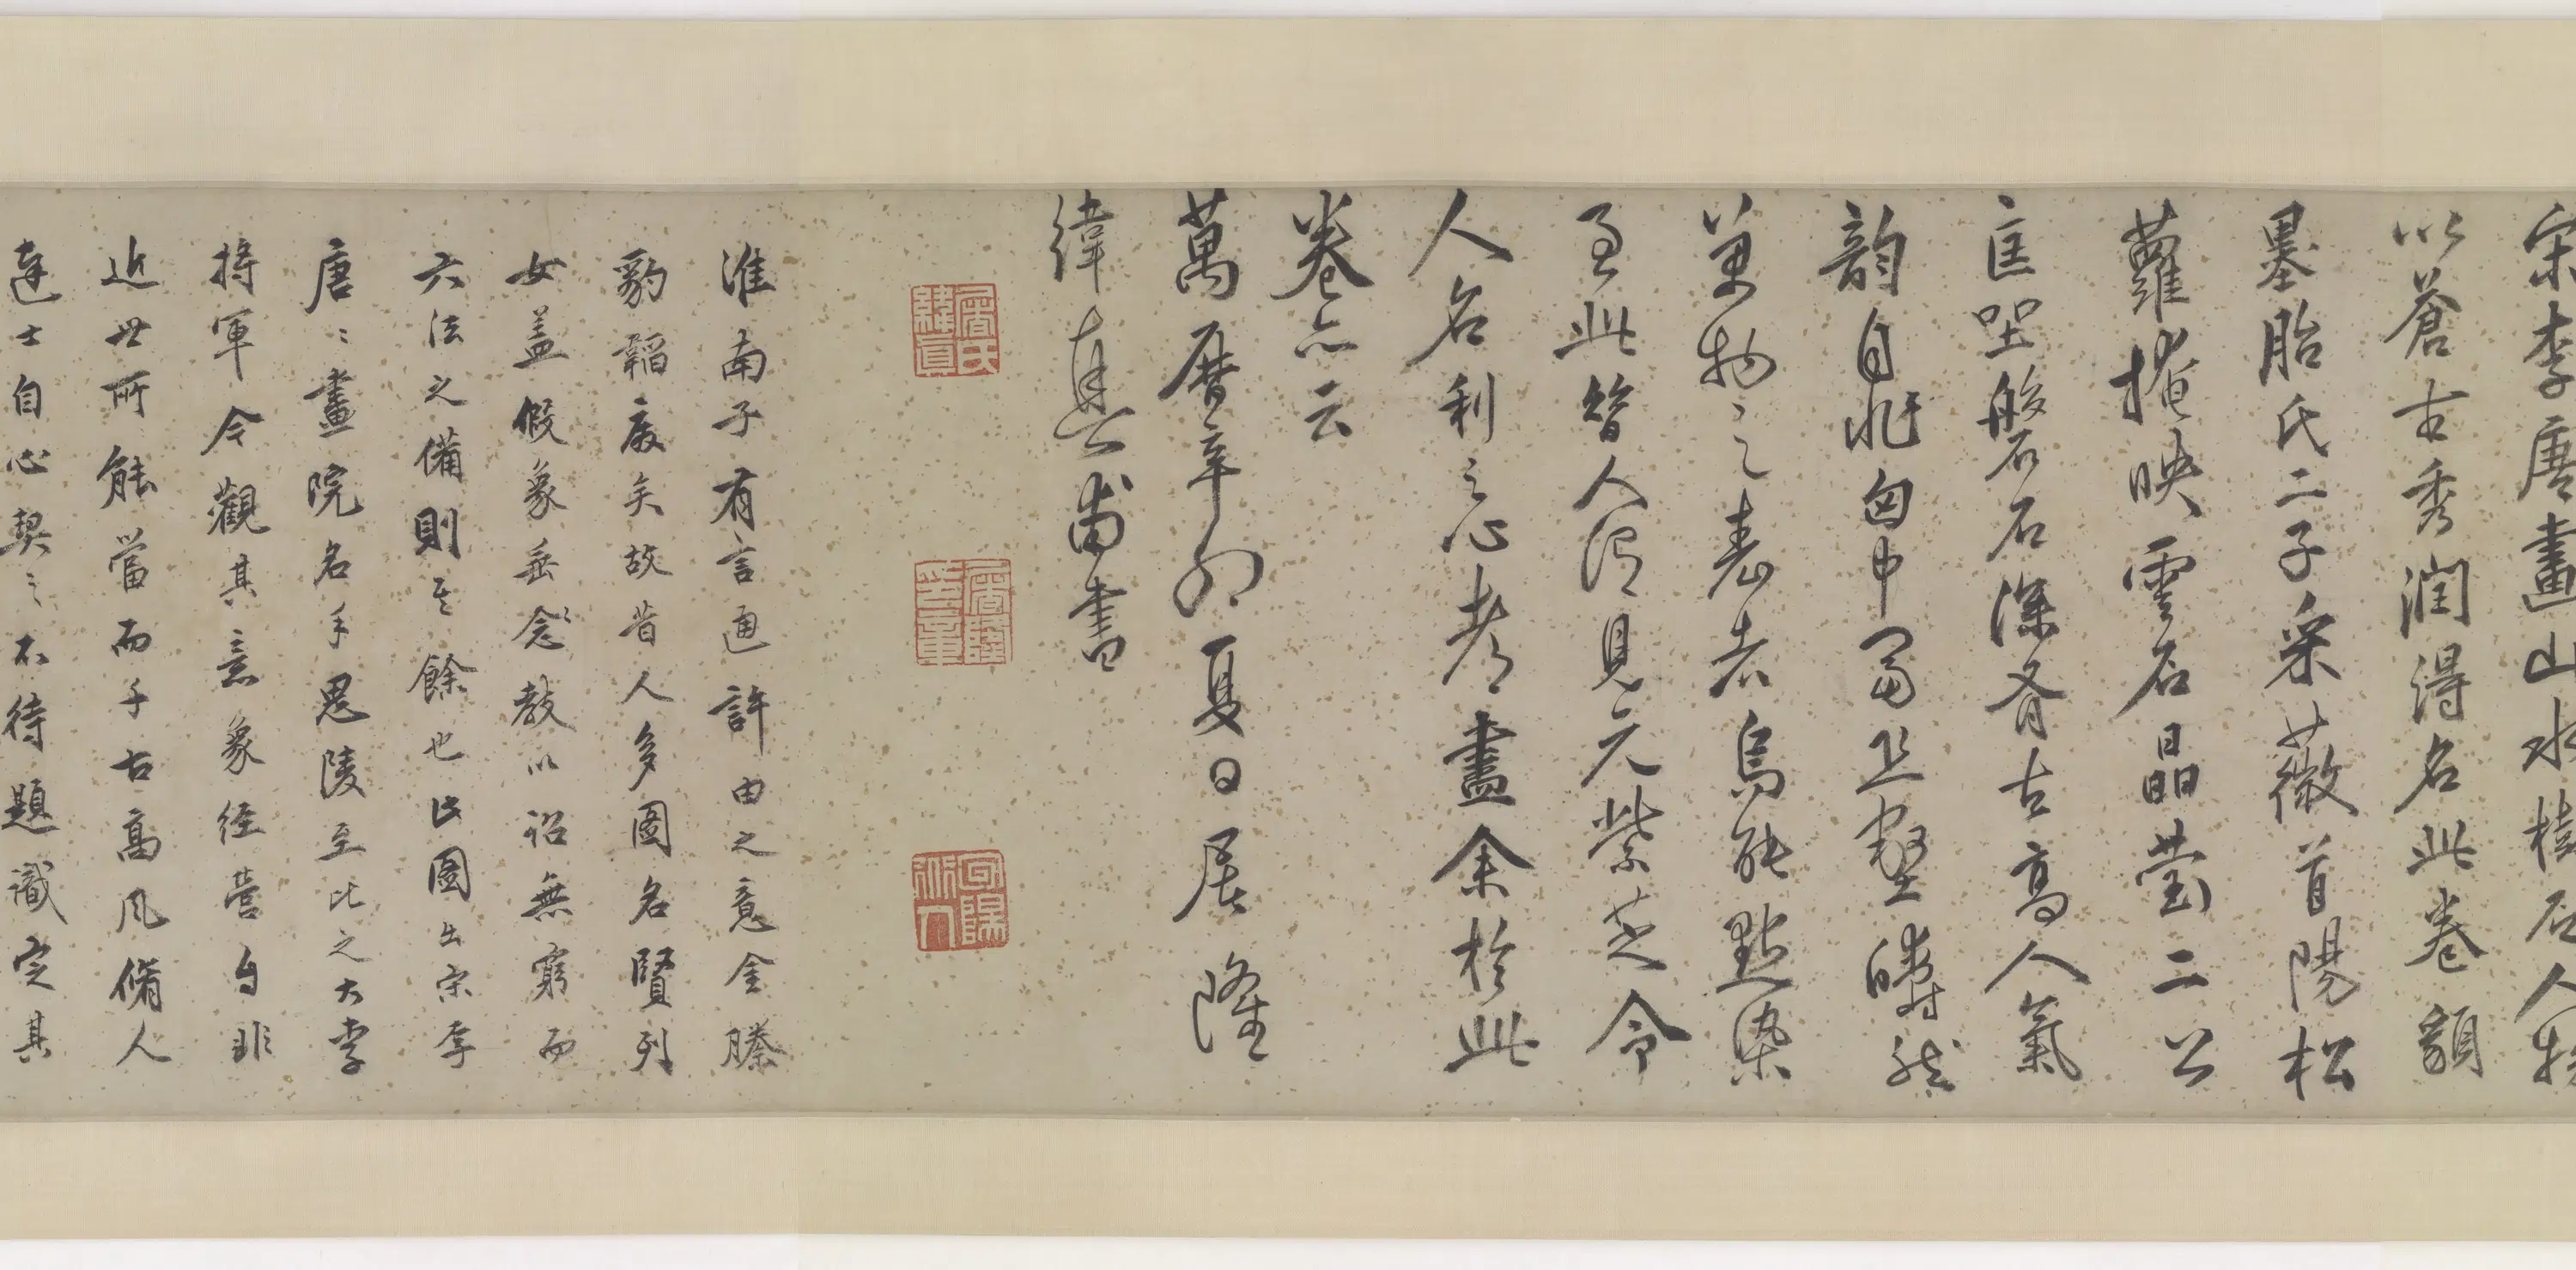 宋李唐畫山水樹石人物
以蒼古秀潤得名此卷貌
墨胎氏二子采薇首陽松
蘿掩映雲石晶瑩二公
匡坐磐石深脊古高人氣
韵自非匈中丘壑皭然
萬物之表者烏能點染
至此昔人得見元紫芝令
人名利之心都盡余於此
卷亦云
萬曆辛卯夏日屠隆
緯真甫書
屠氏緯真
屠隆之章
淮南子有言通許由之意金縢
豹韜廢矣故昔人多圖名賢列
女盖假象垂教以詔無窮而
六法之備則其餘也此圖出宋李
唐唐畫院名手思陵至比之大李
將軍今觀其意象經營自非
近世所能當而千古高風脩人
達士自心契之不待題識定其